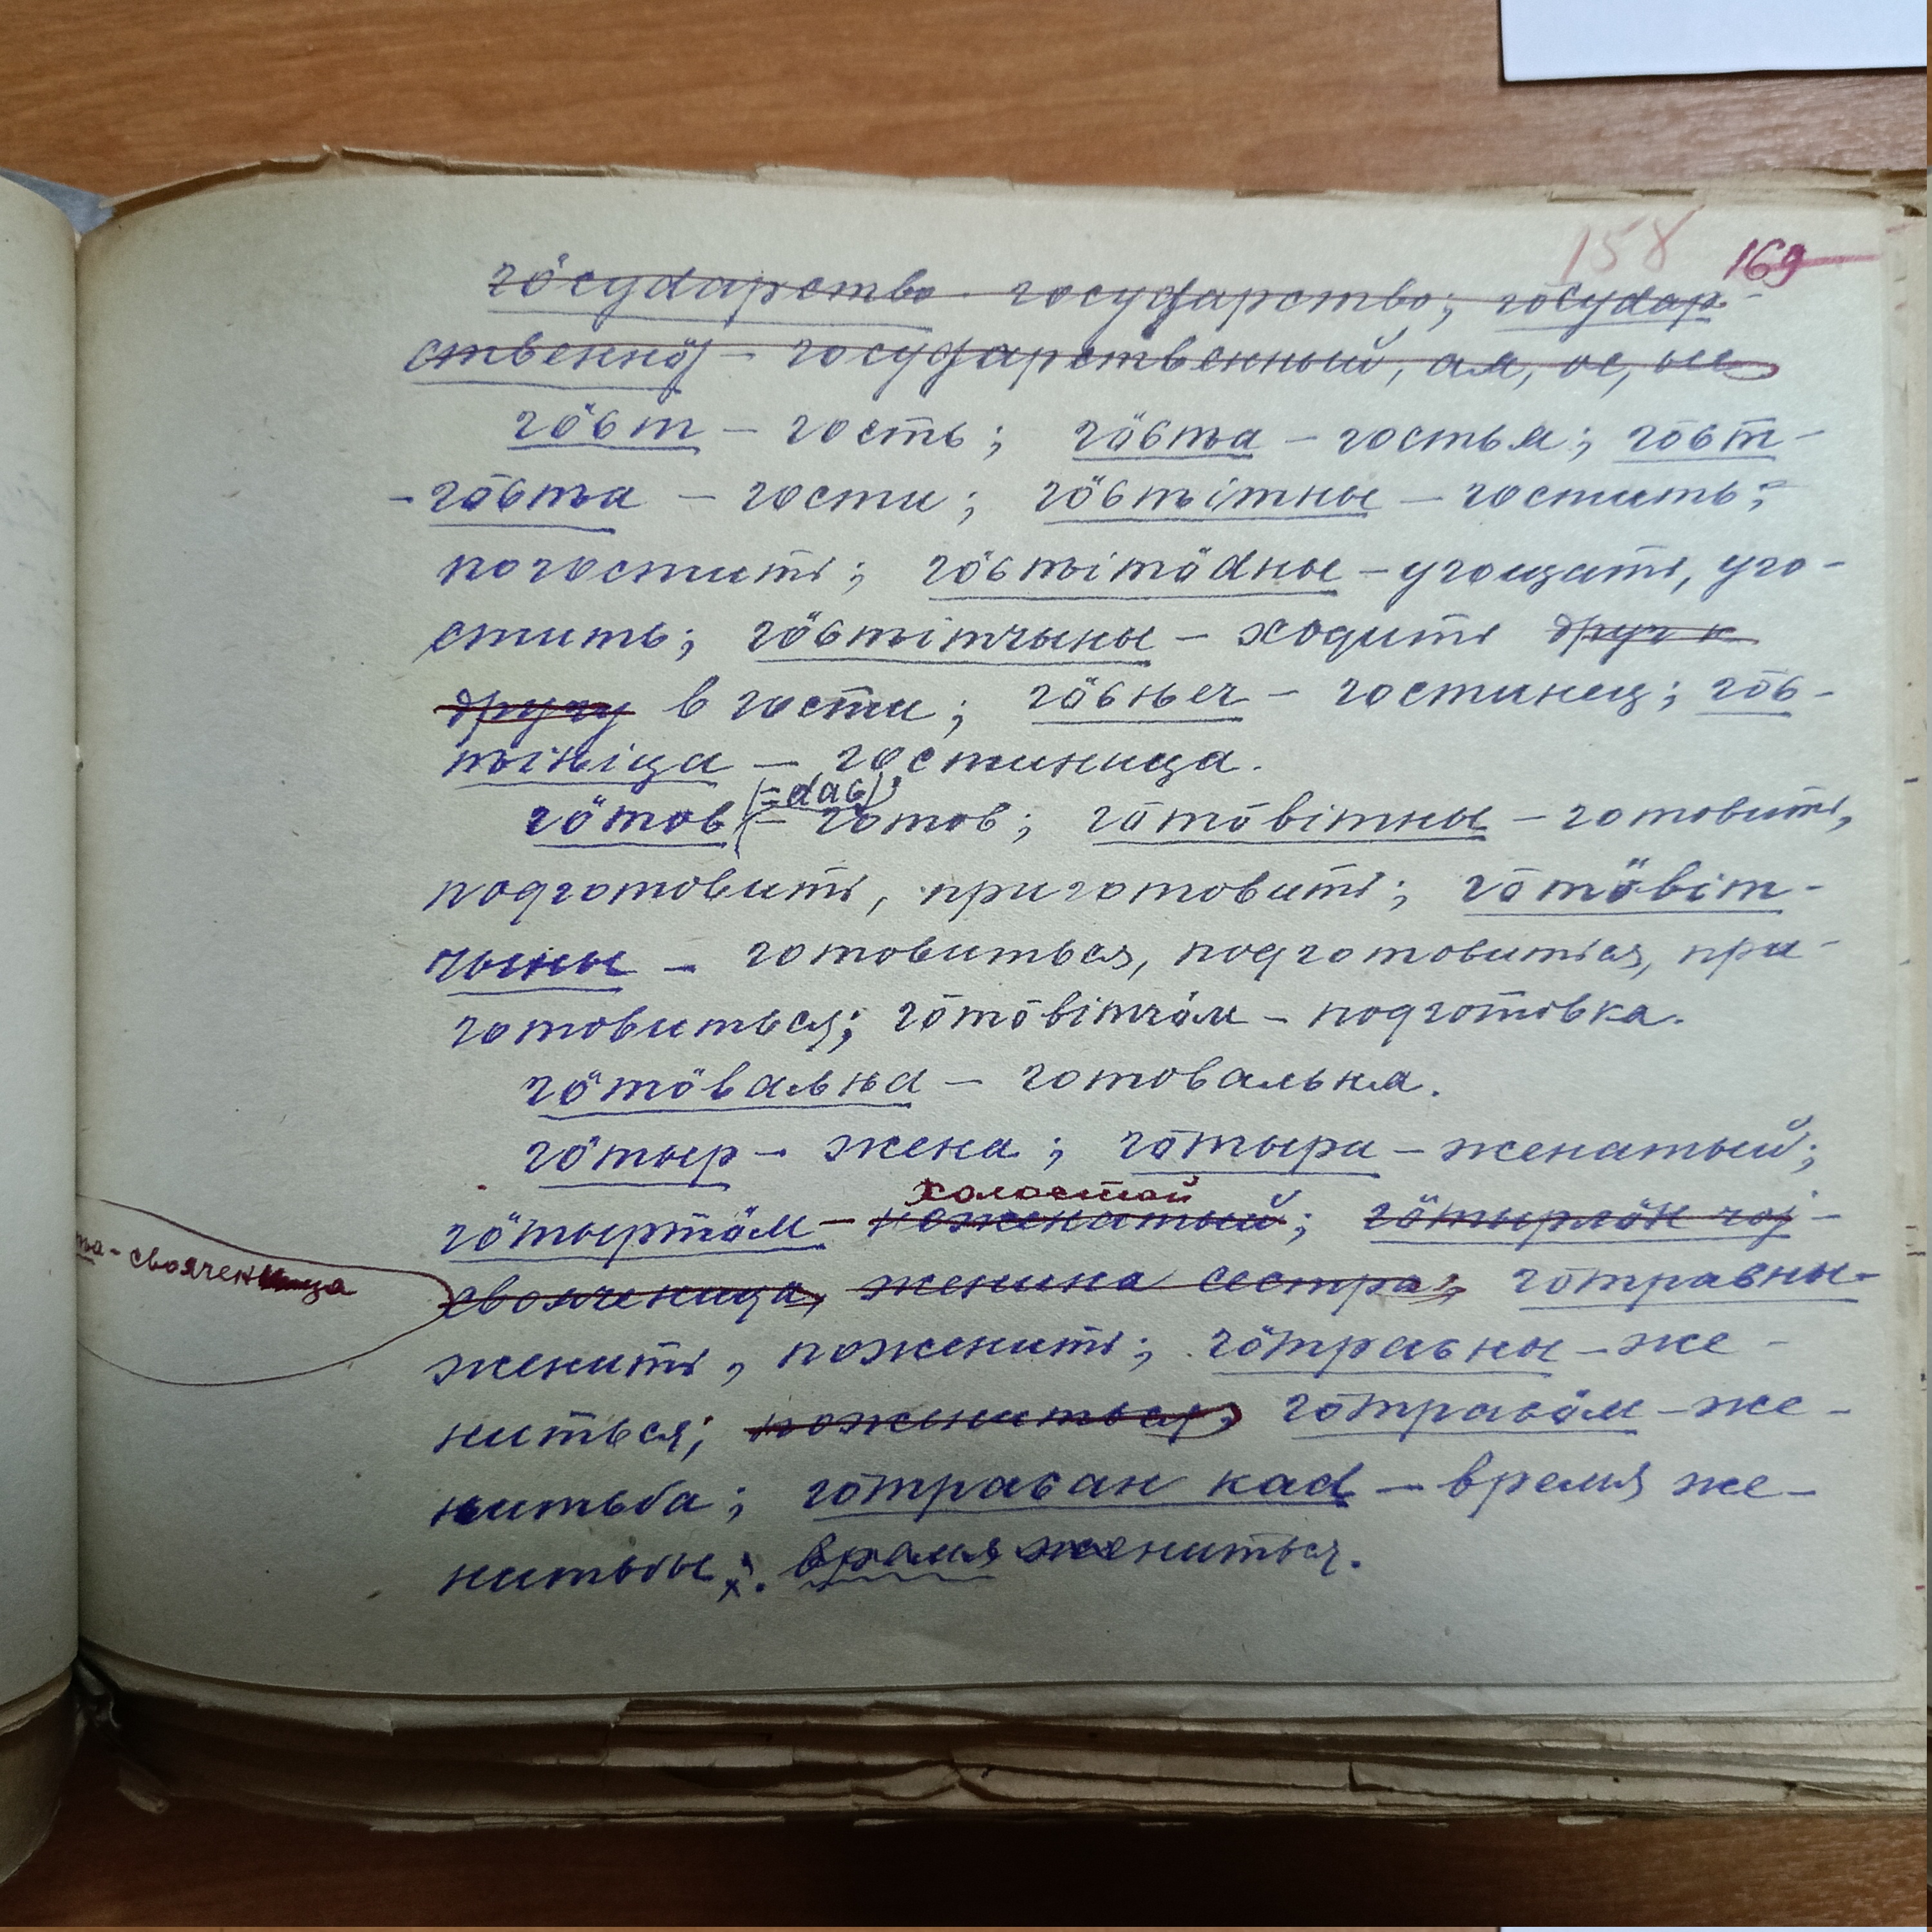 158 169
гӧсударство - государство; гӧсудар-
ственнӧј - государственный, ая, ое, ые
гӧӧт - гость; гӧӧта - гостья; гӧӧт-
-гӧӧта - гости; гӧӧтітны - гостить;
погостить; гӧӧтітӧдны - угощать, уго-
стить; гӧӧтітчыны - ходить друг к
другу в гости; гӧӧнеч - гостинец; гӧӧ-
тініца - гостиница.
(=дас);
гӧтов - готов; гӧтӧвітны - готовить,
подготовить, приготовить; гӧтӧвіт-
чыны - готовиться, подготовиться, при-
готовиться; гӧтӧвітчӧм - подготовка.
гӧтӧвальна - готовальня.
гӧтыр - жена; гӧтыра - женатый;
холостой
гӧтыртӧм - неженатый; гӧтырлӧн чој -
-свояченица
свояченица, женина сестра; гӧтравны-
женить, поженить; гӧтрасны - же-
ниться; пожениться; гӧтрасӧм - же-
нитьба; гӧтрасан кад - время же-
нитьбы; время жениться.